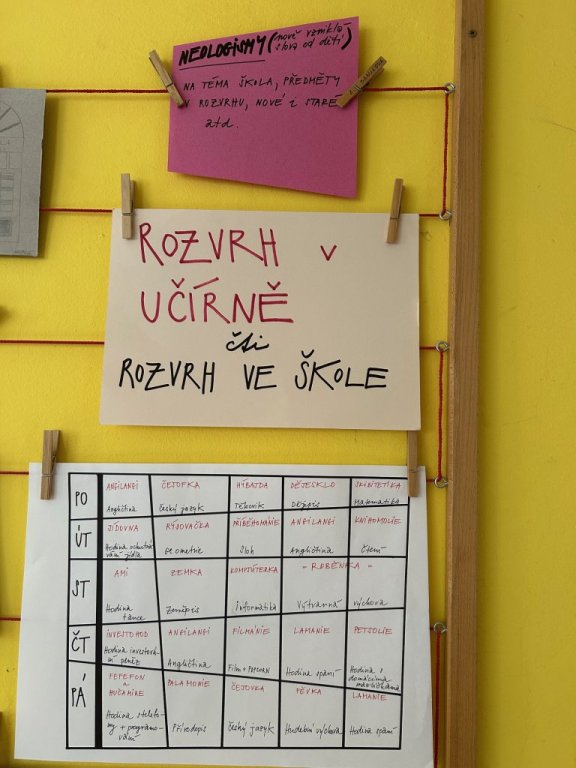 NEOLOGISMY (nově vzniklá
slova od dětí)
NA TÉMA ŠKOLA, PŘEDMĚTY
V ROZVRHU, NOVÉ I STARÉ
atd.
ROZVRH V
UČÍRNĚ
čti
ROZVRH VE ŠKOLE
PO
ANGILANGI
Angličtina
ČEJOFKA
Český jazyk
HÝBAJDA
Tělocvik
DĚJESKLO
Dějepis
SKIBITETIKA
Matematika
ÚT
JÍDOVNA
Hodina ochutná
vání jídla
RÝSOVAČKA
Geometrie
PŘÍBĚHOMÁNIE
Sloh
ANGILANGI
Angličtina
KNIHOMOLIE
Čtení
ST
AMI
Hodina
tance
ZEMKA
Zeměpis
KOMPTÚTERKA
Informatika
- ROBĚNKA -
Výtvarná výchova
ČT
INVESTOHOD
Hodina investová
ní peněz
ANGILANGI
Angličtina
FILMÁNIE
Film + POPCORN
LAMANIE
Hodina spaní
PETSOLIE
Hodina s
domácími
mazlíčkama
PÁ
PEPEFON
a
HUČAMÍRE
Hodina
+ programo-
vání
PALAMONIE
Přírodopis
ČEJOVKA
Český jazyk
PĚVKA
Hudební výchova
LAMANIE
Hodina spaní